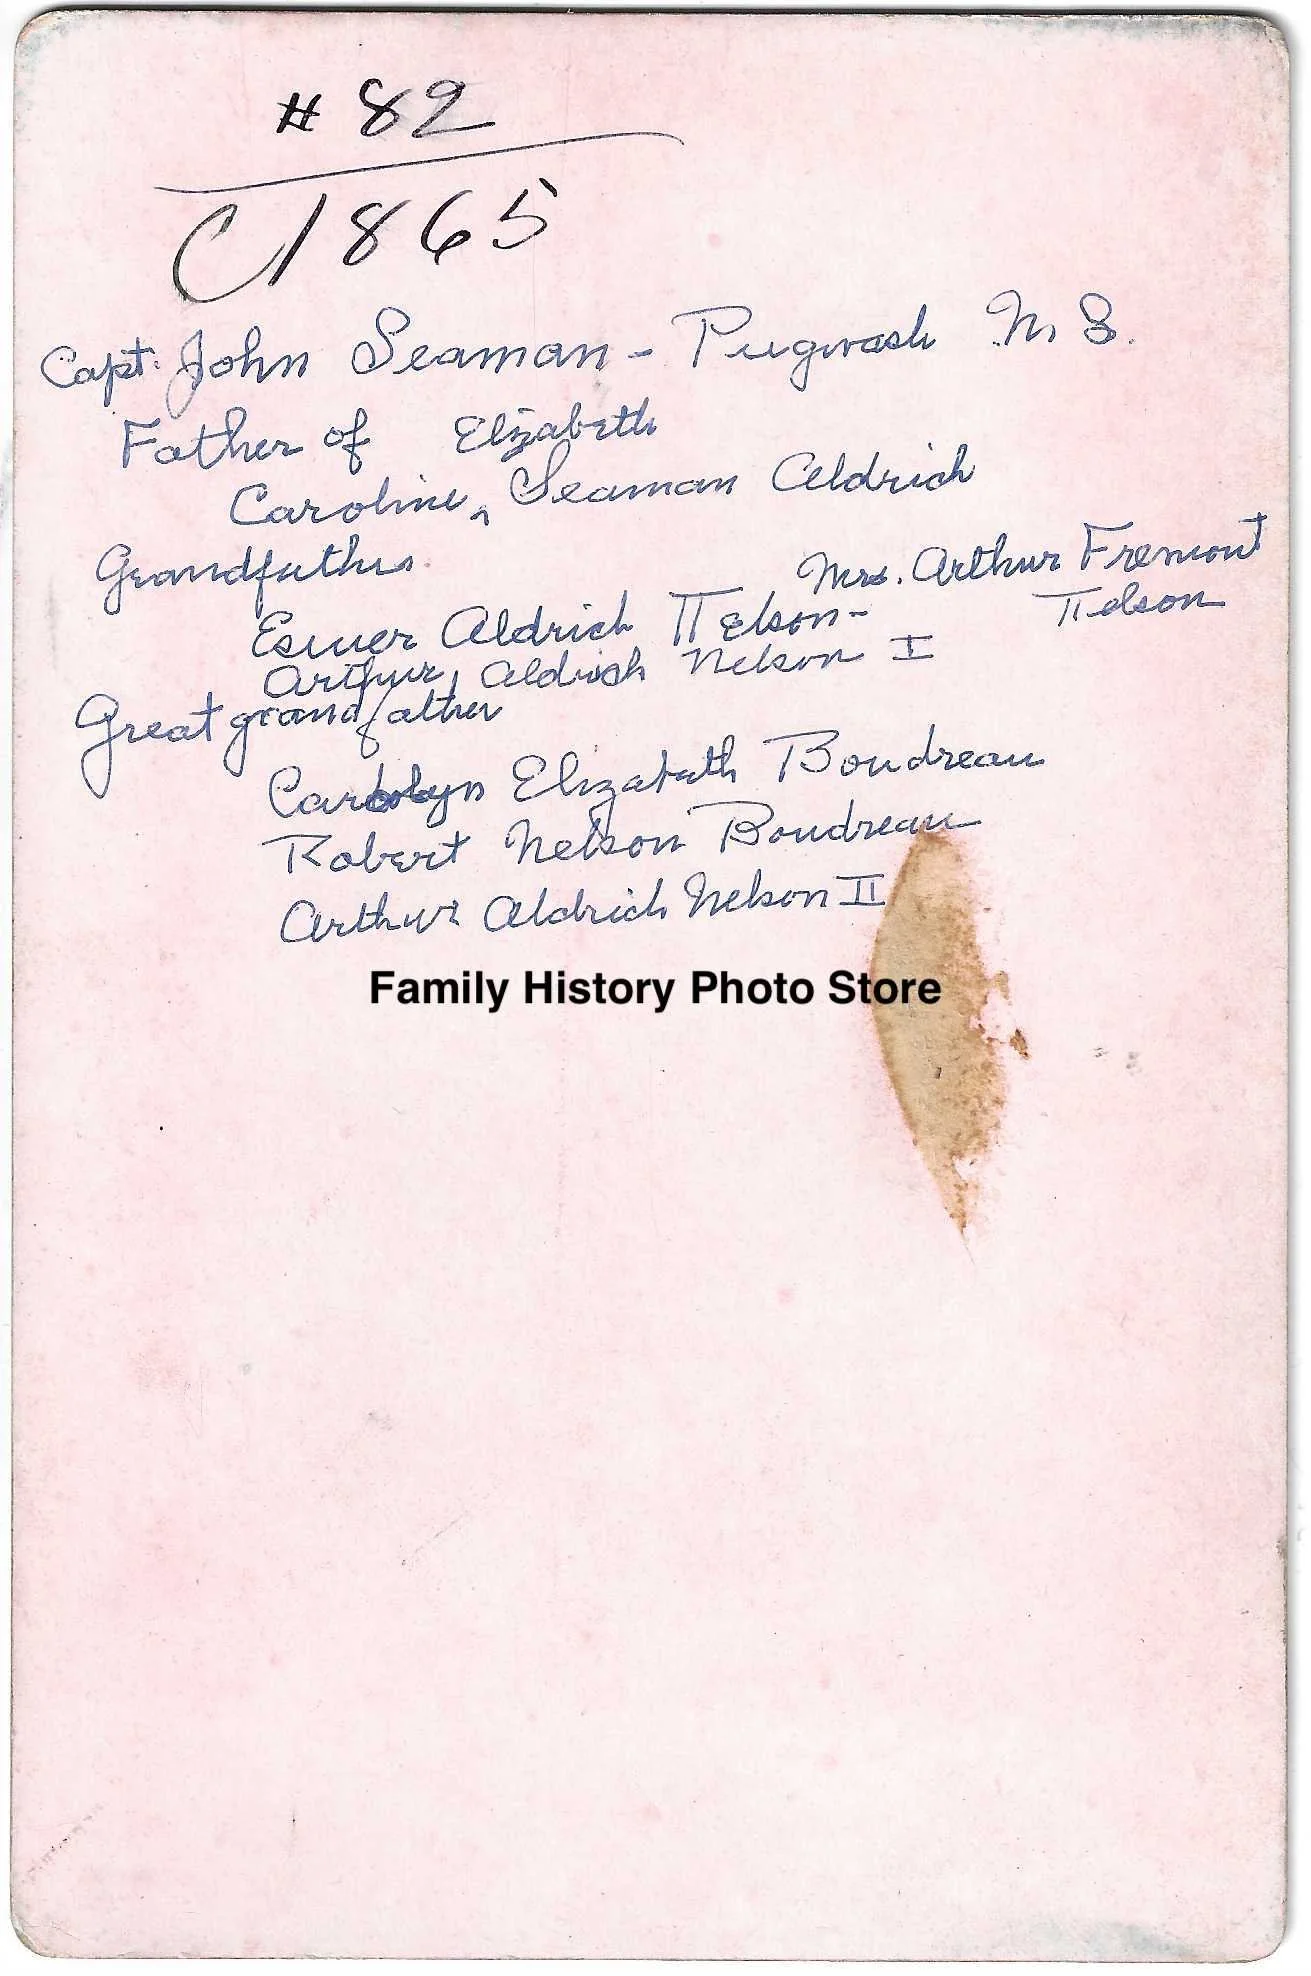 # 82
C1865
Capt. John Seaman - Pugwash N S.
Father of Elizabeth
Caroline ^ Seaman Aldrich
Grandfather
Mrs. Arthur Fremont
Esmer Aldrich Nelson - Nelson
Arthur Aldrich Nelson I
Great grandfather
Carolyn Elizabeth Boudreau
Robert Nelson Boudreau
Arthur Aldrich Nelson II
Family History Photo Store